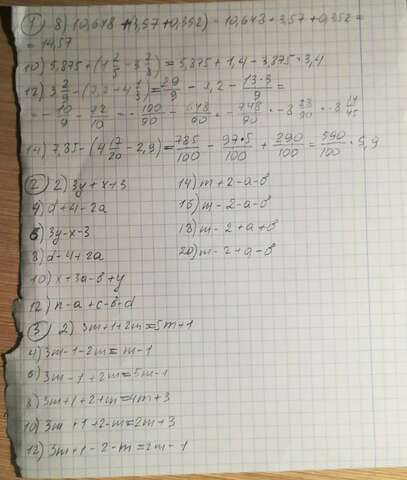 ① 8) 10,648 + (3,57 + 0,352) = 10,648 + 3,57 + 0,352 =
= 14,57
10) 5,875 + (1 2/5 - 3 7/8) = 5,875 + 1,4 - 3,875 = 3,4
12) 3 2/9 - (2,2 - 4 1/3) = 29/9 - 2,2 - 13·3/9 =
14) 7,85 - (4 17/20 - 2,9) = 785/100 - 97·5/100 + 290/100 = 590/100 = 5,9
② 2) 3y + x + 3
4) d + 4 - 2a
6) 3y - x - 3
8) d - 4 + 2a
10) x + 3a - b + y
12) n - a + c - b + d
14) m + 2 - a - b
16) m - 2 - a - b
18) m - 2 + a + b
20) m - 2 + a - b
③ 2) 3m + 1 + 2m = 5m + 1
4) 3m - 1 - 2m = m - 1
6) 3m - 1 + 2m = 5m - 1
8) 3m + 1 + 2 + m = 4m + 3
10) 3m + 1 + 2 - m = 2m + 3
12) 3m + 1 - 2 - m = 2m - 1